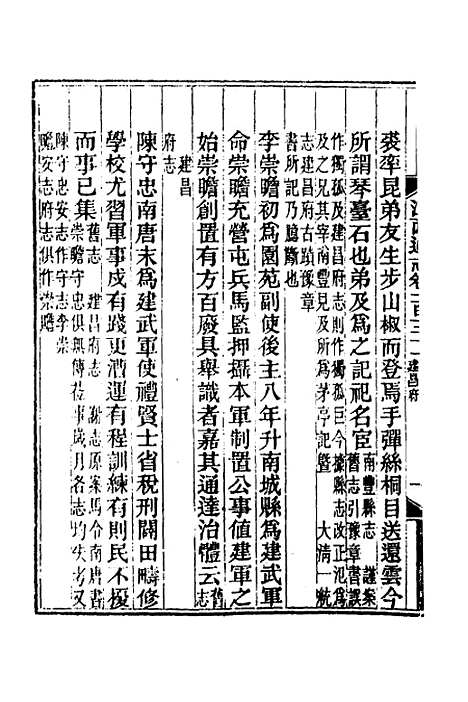 裘率昆弟友生步山椒而登焉手彈絲桐目送還雲今
所謂琴臺石也弟及爲之記祀名宦南豐縣志 謹案舊志引豫章書誤
作獨孤及建昌府志則作獨孤巨今據縣志改正氾爲
及之兄其宰南豐見及所爲茅亭記暨 大清一統
志建昌府古蹟豫章
書所記乃臆斷也
李崇瞻初爲園苑副使後主八年升南城縣爲建武軍
命崇瞻充營屯兵馬監押攝本軍制置公事值建軍之
始崇瞻創置有方百廢具舉識者嘉其通達治體云舊志
建昌
府志
陳守忠南唐末爲建武軍使禮賢士省稅刑闢田疇修
學校尤習軍事戍有踐更漕運有程訓練有則民不擾
而事已集舊志 建昌府志 謝志原案馬令南唐書
崇瞻守忠俱無傳莅事歲月各志均失考又
陳守忠安志作守志李崇
瞻安志府志俱作崇贍
江西通志卷一百三十一 建昌府